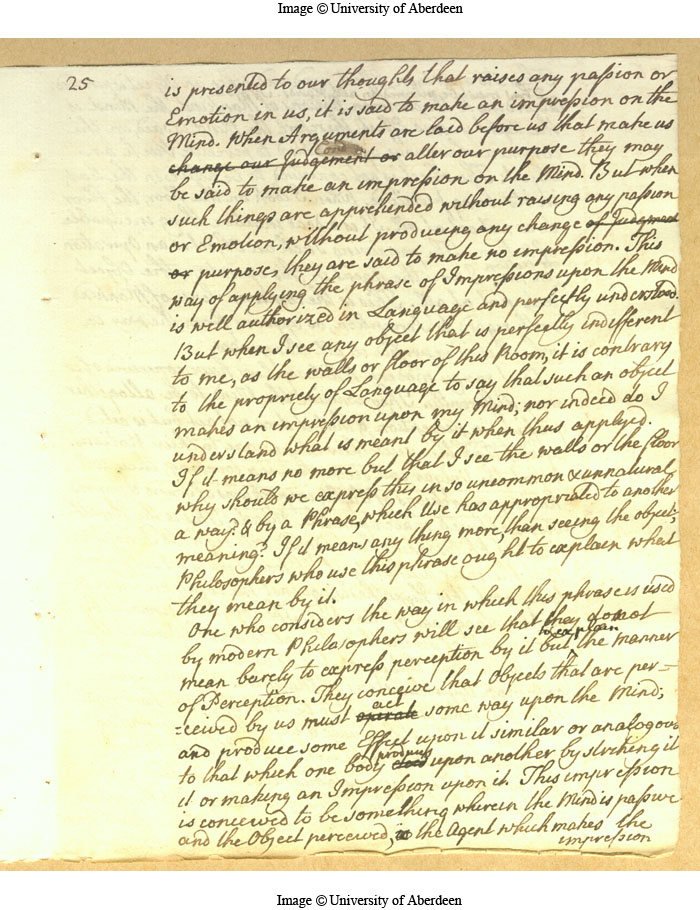 Image © University of Aberdeen
25
is presented to our thoughts that raises any passion or
Emotion in us, it is said to make an impression on the
Mind. When Arguments are laid before us that make us
change our Judgement or alter our purpose they may
be said to make an impression on the Mind. But when
such things are apprehended without raising any passion
or Emotion, without produceing any change of Judgment
or purpose, they are said to make no impression. This
way of applying the phrase of Impressions upon the Mind
is well authorized in Language and perfectly understood.
But when I see any object that is perfectly indifferent
to me, as the walls or floor of this Room, it is contrary
to the propriety of Language to say that such an object
makes an impression upon my Mind; nor indeed do I
understand what is meant by it when thus applyed.
If it means no more but that I see the walls or the floor
why should we express this in so uncommon & unnatural
a way? & by a Phrase, which Use has appropriated to another
meaning? If it means any thing more, than seeing the object;
Philosophers who use this phrase ought to explain what
they mean by it.
One who considers the way in which this phrase is used
by modern Philosophers will see that they do not
to explain
mean barely to express perception by it but the manner
of Perception. They conceive that Objects that are per=
act
=ceived by us must operate some way upon the Mind;
and produce some Effect upon it similar or analogous
produces
to that which one body upon another by striking it
it or making an Impression upon it. This impression
is conceived to be something wherein the Mind is passive
and the Object perceived, is the Agent which makes the
impression
Image © University of Aberdeen